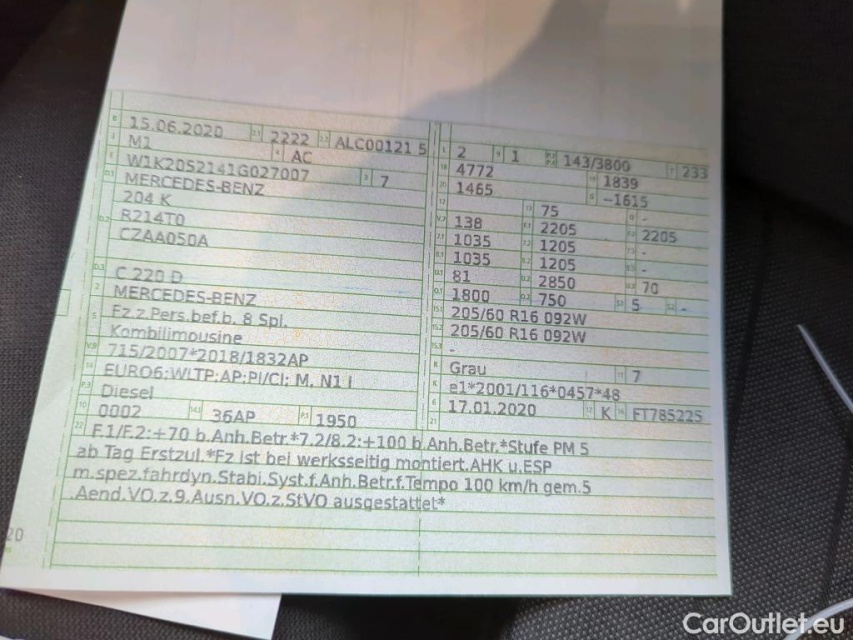 15.06.2020 2222 ALC00121 5
M1 AC
W1K2052141G027007 7
MERCEDES-BENZ
204 K
R214T0
CZAA050A
C 220 D
MERCEDES-BENZ
Fz.z.Pers.bef.b. 8 Spl.
Kombilimousine
715/2007*2018/1832AP
EURO6;WLTP;AP;PI/CI; M, N1 I
Diesel
0002 36AP 1950
2 1 143/3800 233
4772 1839
1465 -1615
75 -
138 2205 2205
1035 1205 -
1035 1205 -
81 2850 70
1800 750 5 -
205/60 R16 092W
205/60 R16 092W
-
Grau 7
e1*2001/116*0457*48
17.01.2020 K FT785225
F.1/F.2:+70 b.Anh.Betr.*7.2/8.2:+100 b.Anh.Betr.*Stufe PM 5
ab Tag Erstzul.*Fz ist bei werksseitig montiert.AHK u.ESP
m.spez.fahrdyn.Stabi.Syst.f.Anh.Betr.f.Tempo 100 km/h gem.5
.Aend.VO.z.9.Ausn.VO.z.StVO ausgestattet*
20
CarOutlet.eu